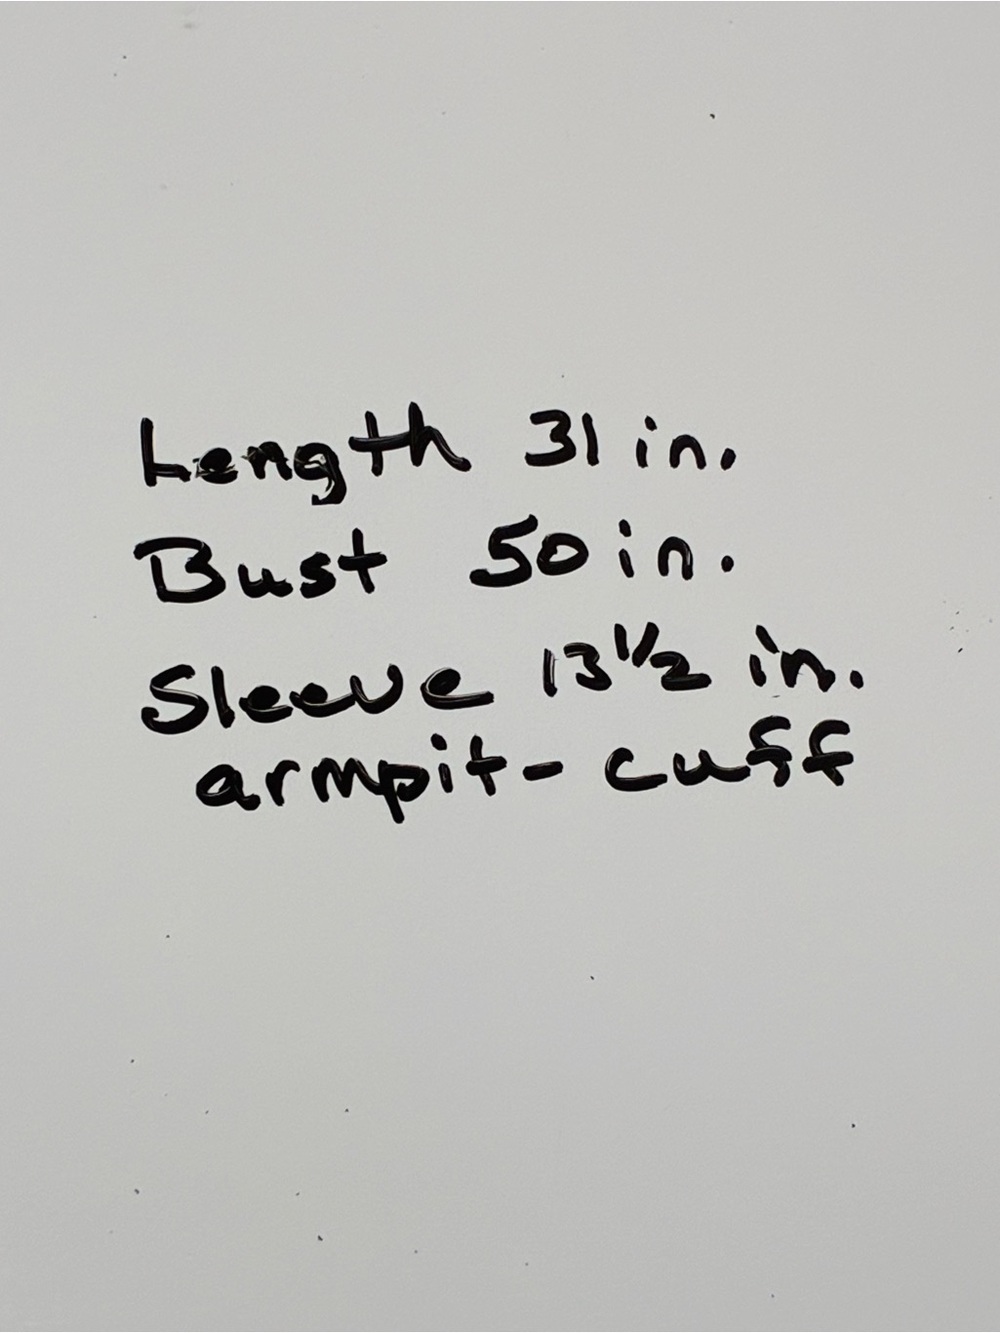 Length 31 in.
Bust 50 in.
Sleeve 13 1/2 in.
armpit - cuff